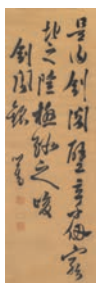 是曰劍閣壁立千仞窮
地之險極路之峻
劍閣銘